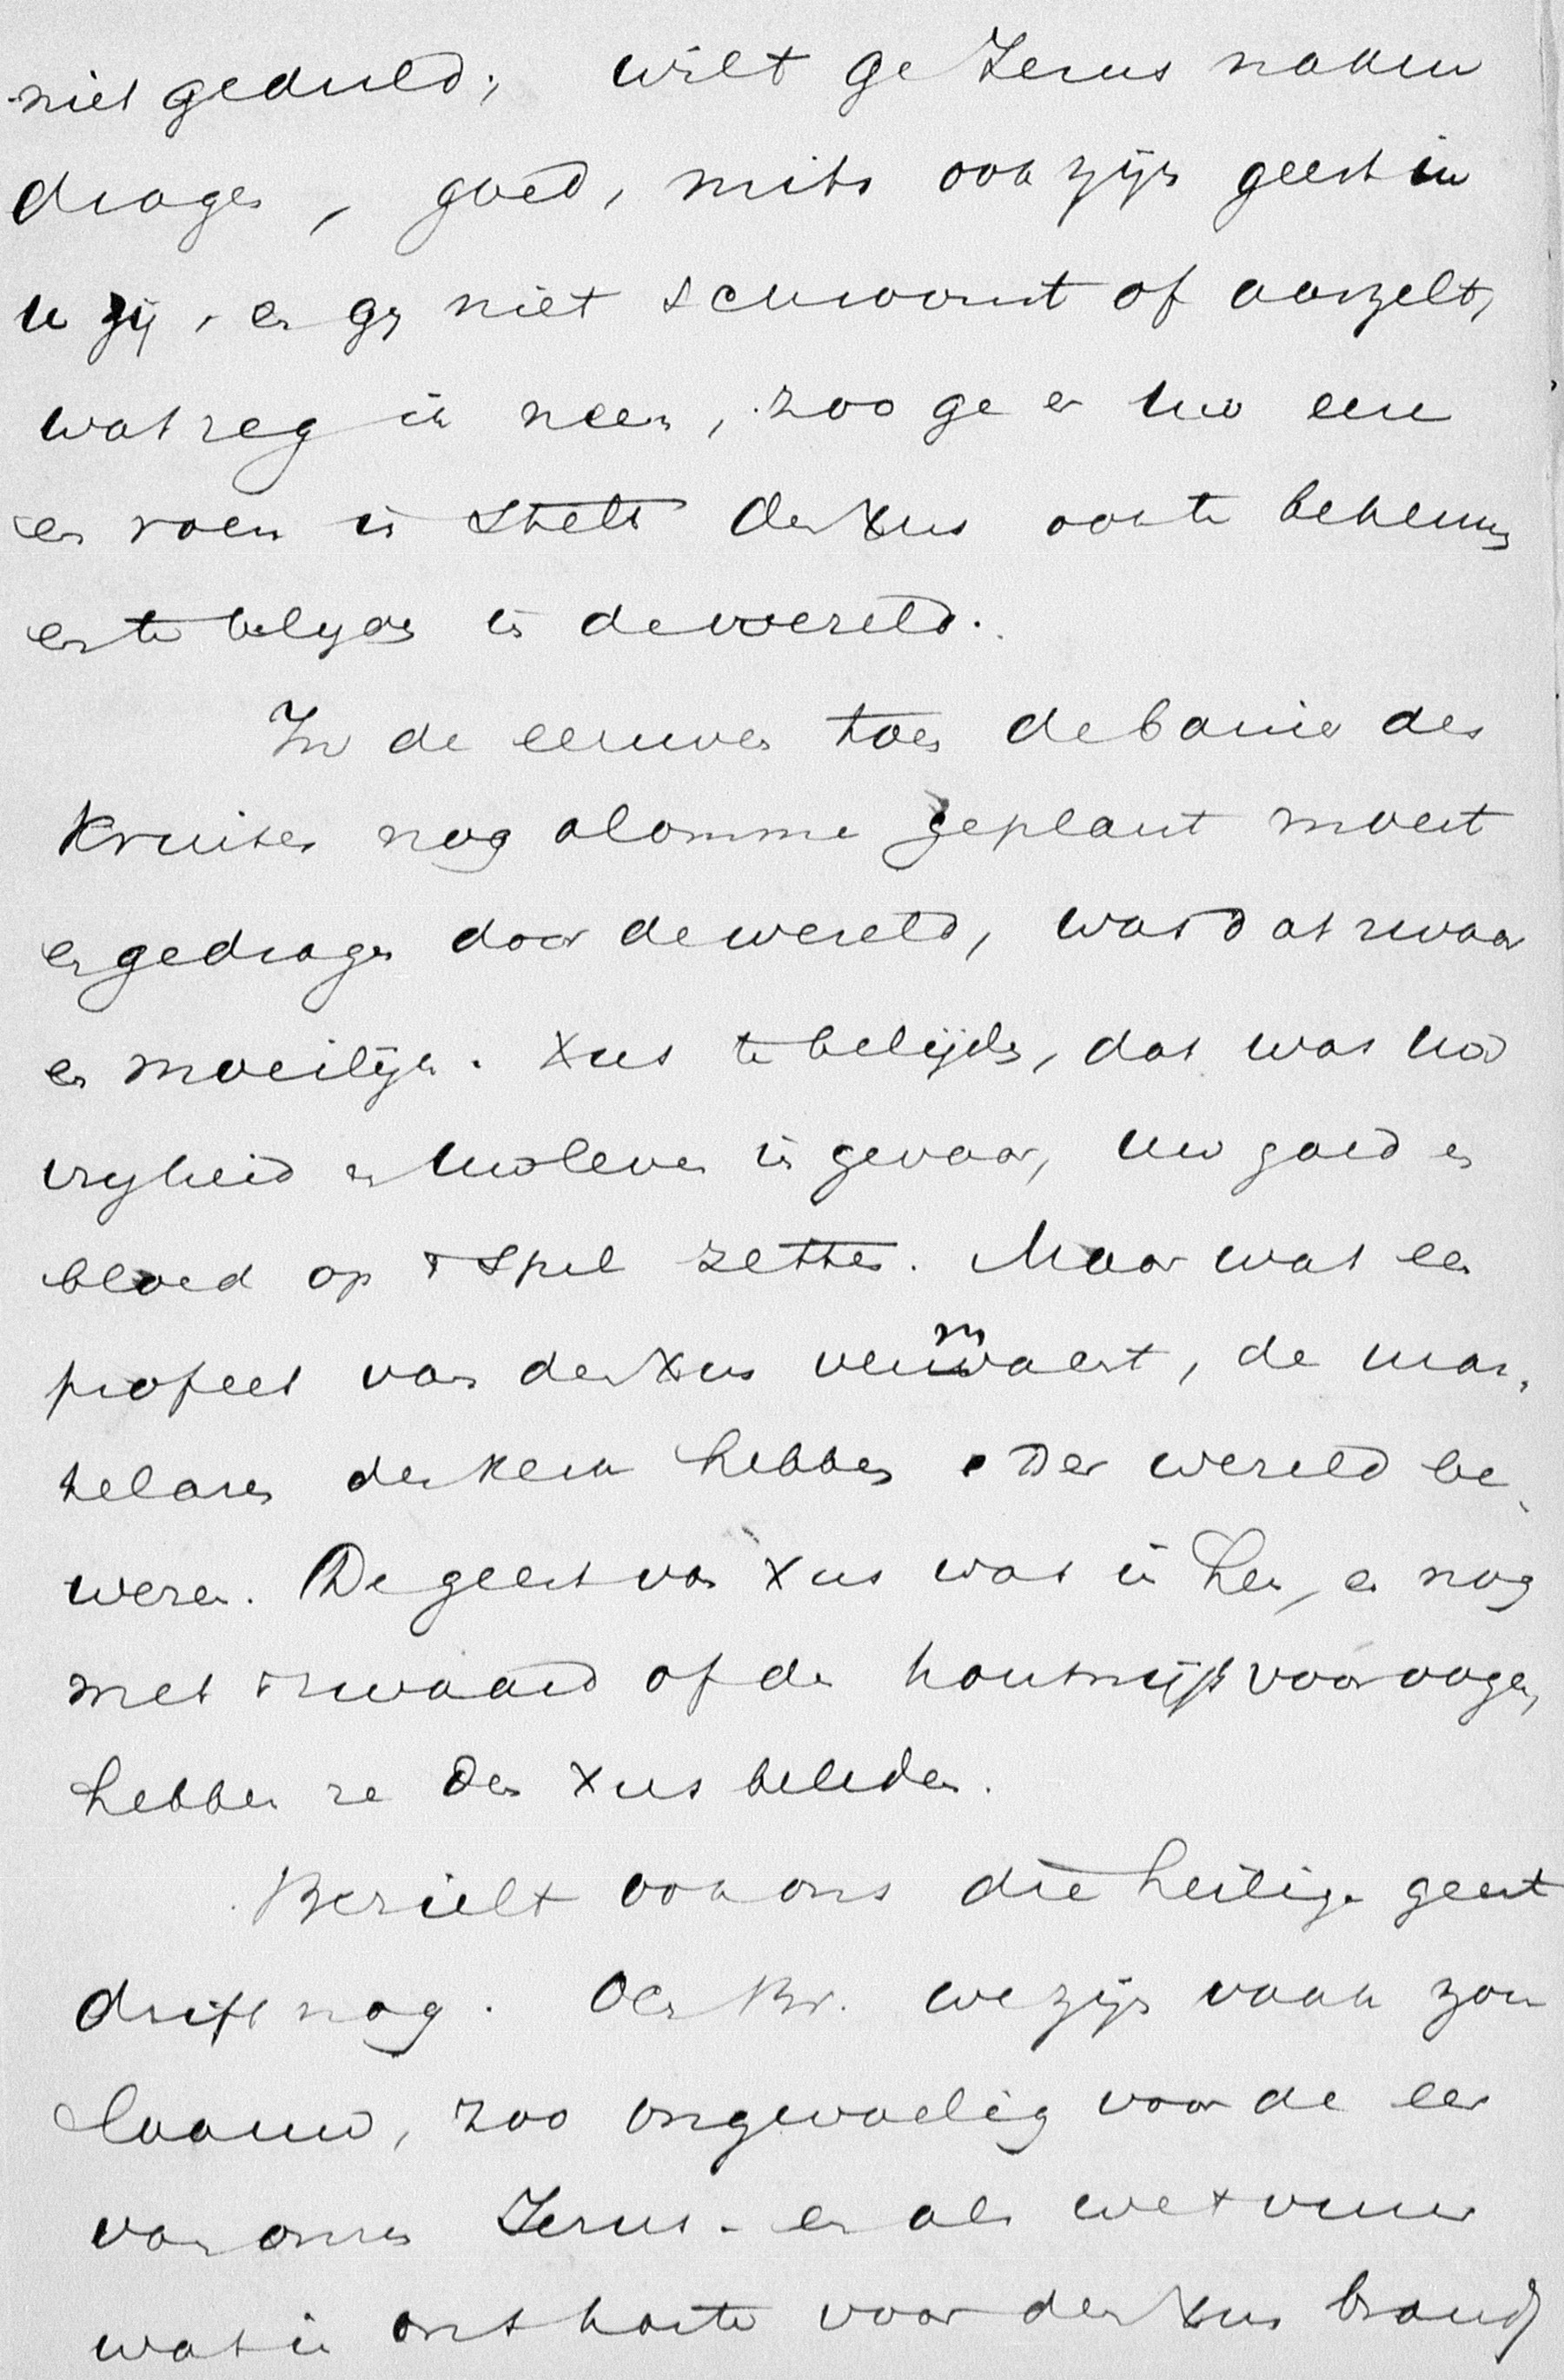 niet geduld; wilt ge Jezus naam
dragen, goed, mits ook zijn geest in
u zij, en gy niet schroomt of aarzelt,
wat zeg ik neen, zoo ge er uw eer
en roem in stelt den Xus ook te bekennen
en te belyden in de wereld.
In de eeuwen toen de banier des
Kruises nog alomme geplant moest
en gedragen door de wereld, was dat zwaar
en moeilijk. Xus te belijden, dat was uw
vryheid en uw leven in gevaar, uw goed en
bloed op 't spel zetten. Maar wat een
profeet van den Xus vermaent, de mar-
telaren der Kerk hebben 't der wereld be-
wezen. De geest van Xus was in hen, en nog
met 't zwaard of de houtmijt voor oogen,
hebben ze den Xus beleden.
Bezielt ook ons die heilige geest
drift nog. Och Br. we zijn vaak zoo
laauw, zoo ongevoelig voor de eer
van onzen Jezus - en als we 't vuur
wat in ons harte voor den Xus brandt